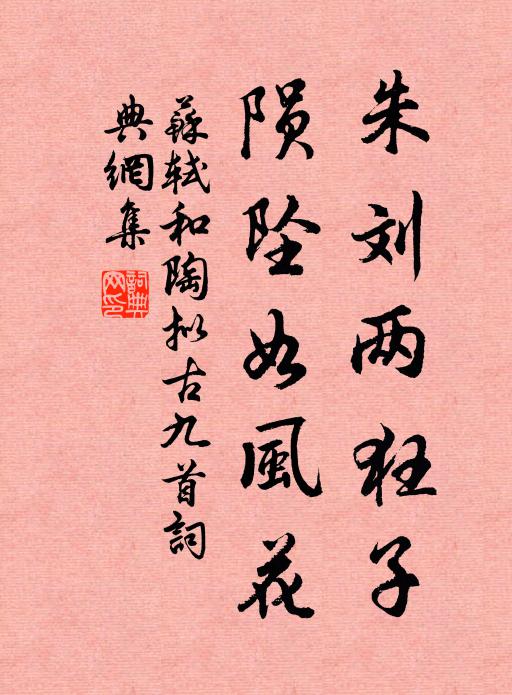 朱刘两狂子
陨坠如风花
苏轼和陶拟古九首词
典網集
詞典
网印